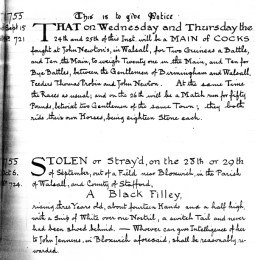 1755 This is to give Notice
Sept 15 THAT on Wednesday and Thursday the
No 721 24th and 25th of this Inst. will be a MAIN of COCKS
fought at John Newton's, in Walsall, for Two Guineas a Battle,
and Ten the Main, to weigh Twenty one in the Main, and Ten for
Bye Battles, between the Gentlemen of Birmingham and Walsall.
Feeders Thomas and John Newton. At the same Time
the Races as usual; and on the 26th will be a Match run for fifty
Pounds, betwixt two Gentlemen of the same Town; they both
ride their own Horses, being eighteen Stone each.
1755 STOLEN or Stray'd, on the 28th or 29th
Oct 6. of September, out of a Field near Bloxwich, in the Parish
No 724. of Walsall, and County of Stafford,
A Black Filley,
rising three Years old, about fourteen Hands and a half high,
with a Snip of White over one Nostril, a switch Tail and never
had been shoed behind. — Whoever can give Intelligence of her
to John Jennens, in Bloxwich aforesaid, shall be reasonably re-
warded.